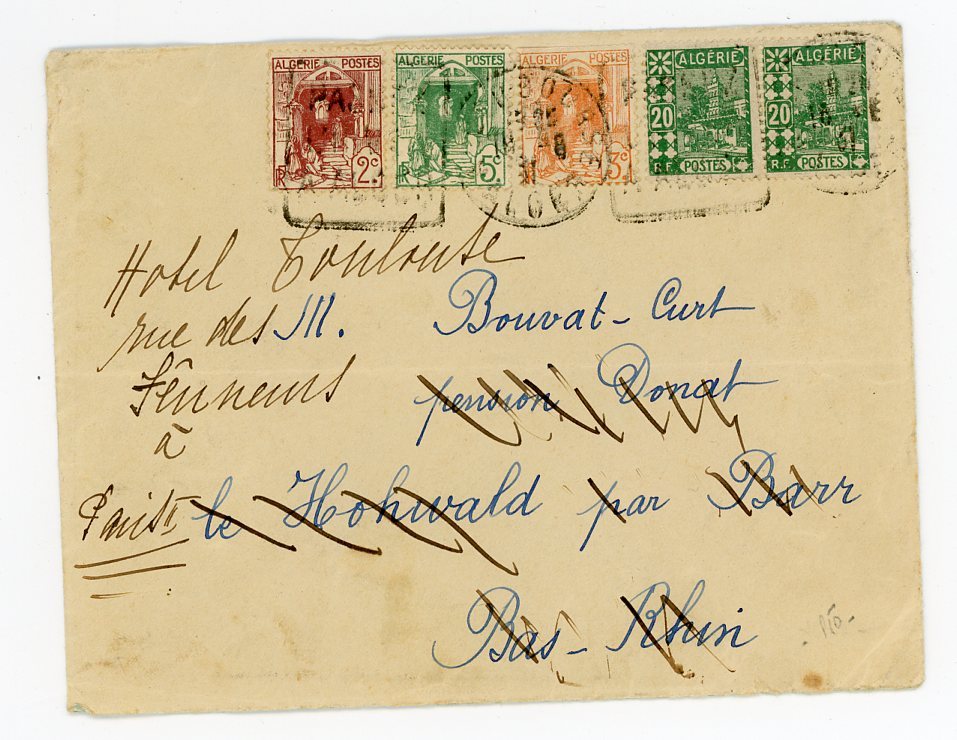 ALGÉRIE POSTES
2c
ALGÉRIE POSTES
5c
ALGÉRIE POSTES
3c
ALGÉRIE
20
R.F. POSTES
ALGÉRIE
20
R.F. POSTES
Hotel Toulouse
rue des
à
Paris
M. Bouvat-Curt
pension Donat
le Hohwald par Barr
Bas-Rhin